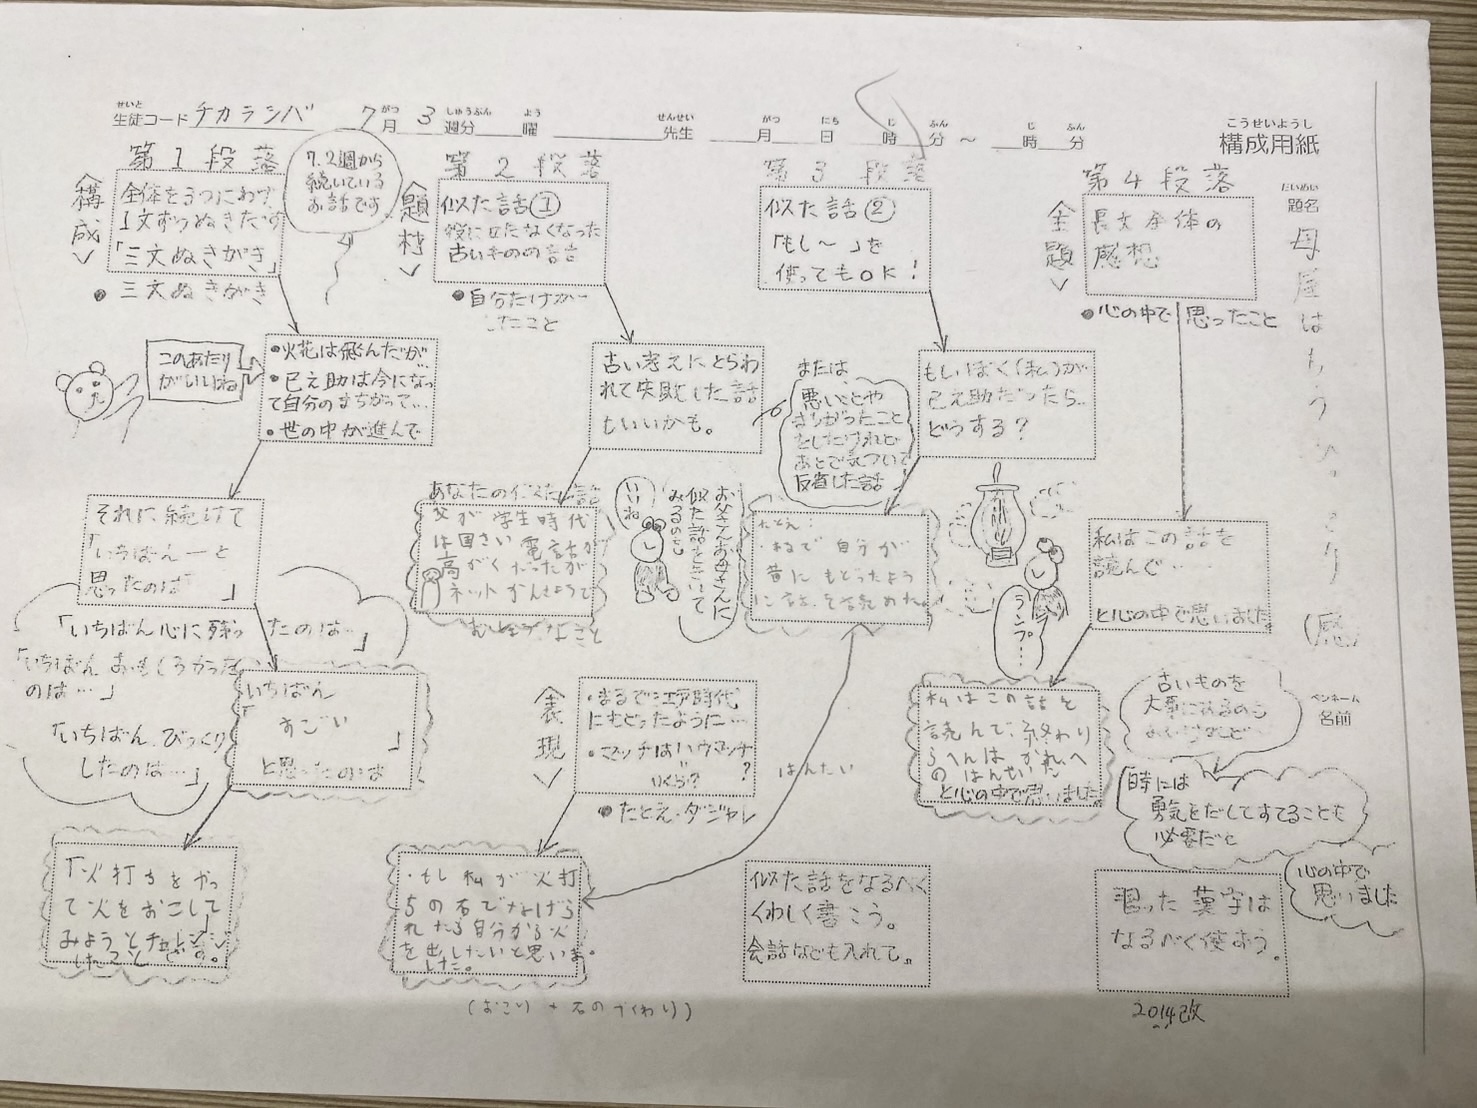 生徒コード チカラシバ 7月 3週分 曜 先生 月 日 時 分 ～ 時 分
せいと がつ しゅうぶん よう せんせい がつ にち じ ふん じ ふん
こうせいようし
構成用紙
だいめい
題名
母屋はもう
(感)
ペンネーム
名前
第1段落
＜構成＞
全体を3つにわけ
1文ずつぬきだす
「三文ぬきがき」
●三文ぬきがき
7.2週から
続いている
お話です
このあたり
がいいね
・火花は飛んだが…
・已之助は今になっ
て自分のまちがって…
・世の中が進んで
それに続けて
「いちばん―と
思ったのは 」
「いちばん心に残ったのは…」
「いちばんおもしろかった
のは…」
「いちばんびっくり
したのは…」
いちばん
「 すごい
」
と思ったのは
「火打ちをやっ
て火をおこして
みようとチャレンジ
したことです。
第2段落
＜題材＞
似た話①
役に立たなくなった
古いものの話
●自分だけが
したこと
古い考えにとらわ
れて失敗した話
もいいかも。
あなたの似た話
父が学生時代
は国さい電話が
高がくだったが
ネットかんきょうで
なこと
いいね
お父さんお母さんに
似た話をきいて
みるのも
＜表現＞
・まるで江戸時代
にもどったように…
・マッチはハウマッチ
いくら？ ？
●たとえ・ダジャレ
・もし私が火打
ちの石でなげら
れたら自分から火
を出したいと思いま
した。
(おこり + 石の
第3段落
似た話②
「もし～」を
使ってもOK！
もしぼく(私)が
已之助だったら…
どうする？
または、
悪いことや
まちがったこと
をしたけれど
あとで気づいて
反省した話
たとえ：
・まるで自分が
昔にもどったよう
に話を読めた。
はんたい
似た話をなるべく
くわしく書こう。
会話なども入れて。
第4段落
＜主題＞
長文全体の
感想
●心の中で思ったこと
ランプ…
私はこの話を
読んで…
と心の中で思いました。
私はこの話を
読んで、終わり
らへんは かれへ
の はんせいだ
と心の中で思いました。
古いものを
大事にするのも
よいけれど…
時には
勇気をだしてすてることも
必要だと
心の中で
思いました
習った漢字は
なるべく使おう。
2014改